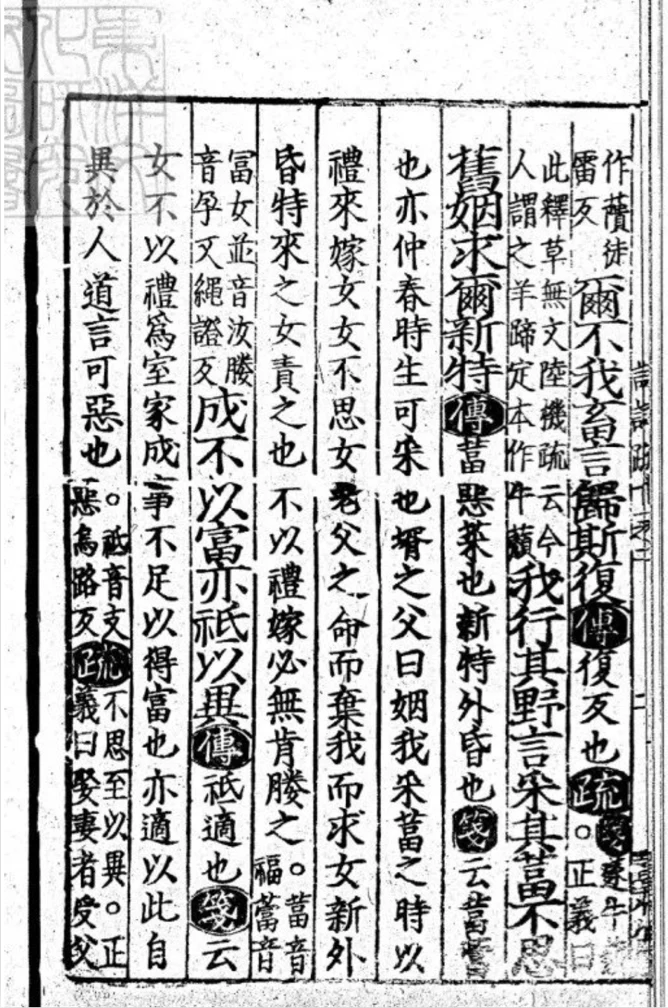 作藬徒
雷反
爾不我畜言歸斯復傳復反也疏
箋蓫牛
。正義曰
此釋草無文陸機疏云今
人謂之羊蹄定本作牛藬
我行其野言采其葍不思
舊姻求爾新特傳葍惡菜也新特外昏也箋云葍
也亦仲春時生可采也壻之父曰姻我采葍之時以
禮來嫁女女不思女老父之命而棄我而求女新外
昏特來之女責之也不以禮嫁必無肯媵之
。葍音
福䔰音
富女並音汝媵
音孕又繩證反
成不以富亦祗以異傳祗適也箋云
女不以禮爲室家成事不足以得富也亦適以此自
異於人道言可惡也
。祗音支疏不思至以異。正
惡烏路反義曰娶妻者受父